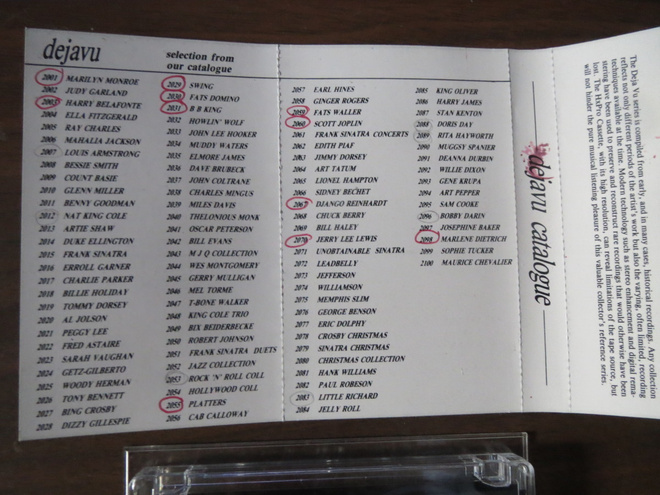 dejavu
selection from
our catalogue
2001 MARILYN MONROE
2002 JUDY GARLAND
2003 HARRY BELAFONTE
2004 ELLA FITZGERALD
2005 RAY CHARLES
2006 MAHALIA JACKSON
2007 LOUIS ARMSTRONG
2008 BESSIE SMITH
2009 COUNT BASIE
2010 GLENN MILLER
2011 BENNY GOODMAN
2012 NAT KING COLE
2013 ARTIE SHAW
2014 DUKE ELLINGTON
2015 FRANK SINATRA
2016 ERROLL GARNER
2017 CHARLIE PARKER
2018 BILLIE HOLIDAY
2019 TOMMY DORSEY
2020 AL JOLSON
2021 PEGGY LEE
2022 FRED ASTAIRE
2023 SARAH VAUGHAN
2024 GETZ-GILBERTO
2025 WOODY HERMAN
2026 TONY BENNETT
2027 BING CROSBY
2028 DIZZY GILLESPIE
2029 SWING
2030 FATS DOMINO
2031 B B KING
2032 HOWLIN' WOLF
2033 JOHN LEE HOOKER
2034 MUDDY WATERS
2035 ELMORE JAMES
2036 DAVE BRUBECK
2037 JOHN COLTRANE
2038 CHARLES MINGUS
2039 MILES DAVIS
2040 THELONIOUS MONK
2041 OSCAR PETERSON
2042 BILL EVANS
2043 M J Q COLLECTION
2044 WES MONTGOMERY
2045 GERRY MULLIGAN
2046 MEL TORME
2047 T-BONE WALKER
2048 KING COLE TRIO
2049 BIX BEIDERBECKE
2050 ROBERT JOHNSON
2051 FRANK SINATRA DUETS
2052 JAZZ COLLECTION
2053 ROCK 'N' ROLL COLL
2054 HOLLYWOOD COLL
2055 PLATTERS
2056 CAB CALLOWAY
2057 EARL HINES
2058 GINGER ROGERS
2059 FATS WALLER
2060 SCOTT JOPLIN
2061 FRANK SINATRA CONCERTS
2062 EDITH PIAF
2063 JIMMY DORSEY
2064 ART TATUM
2065 LIONEL HAMPTON
2066 SIDNEY BECHET
2067 DJANGO REINHARDT
2068 CHUCK BERRY
2069 BILL HALEY
2070 JERRY LEE LEWIS
2071 UNOBTAINABLE SINATRA
2072 LEADBELLY
2073 JEFFERSON
2074 WILLIAMSON
2075 MEMPHIS SLIM
2076 GEORGE BENSON
2077 ERIC DOLPHY
2078 CROSBY CHRISTMAS
2079 SINATRA CHRISTMAS
2080 CHRISTMAS COLLECTION
2081 HANK WILLIAMS
2082 PAUL ROBESON
2083 LITTLE RICHARD
2084 JELLY ROLL
2085 KING OLIVER
2086 HARRY JAMES
2087 STAN KENTON
2088 DORIS DAY
2089 RITA HAYWORTH
2090 MUGGSY SPANIER
2091 DEANNA DURBIN
2092 WILLIE DIXON
2093 GENE KRUPA
2094 ART PEPPER
2095 SAM COOKE
2096 BOBBY DARIN
2097 JOSEPHINE BAKER
2098 MARLENE DIETRICH
2099 SOPHIE TUCKER
2100 MAURICE CHEVALIER
dejavu catalogue
The Deja Vu series is compiled from early, and in many cases, historical recordings. Any collection
reflects not only different periods of the artist's work but also the varying, often limited, recording
techniques available at the time. Modern technology such as stereo enhancement and digital rema-
stering have been used to preserve and reconstruct rare recordings that would otherwise have been
lost. The HxPro Cassette, with its high resolution, can reveal limitations of the tape source, but
will not hinder the pure musical listening pleasure of this valuable collector's reference series.